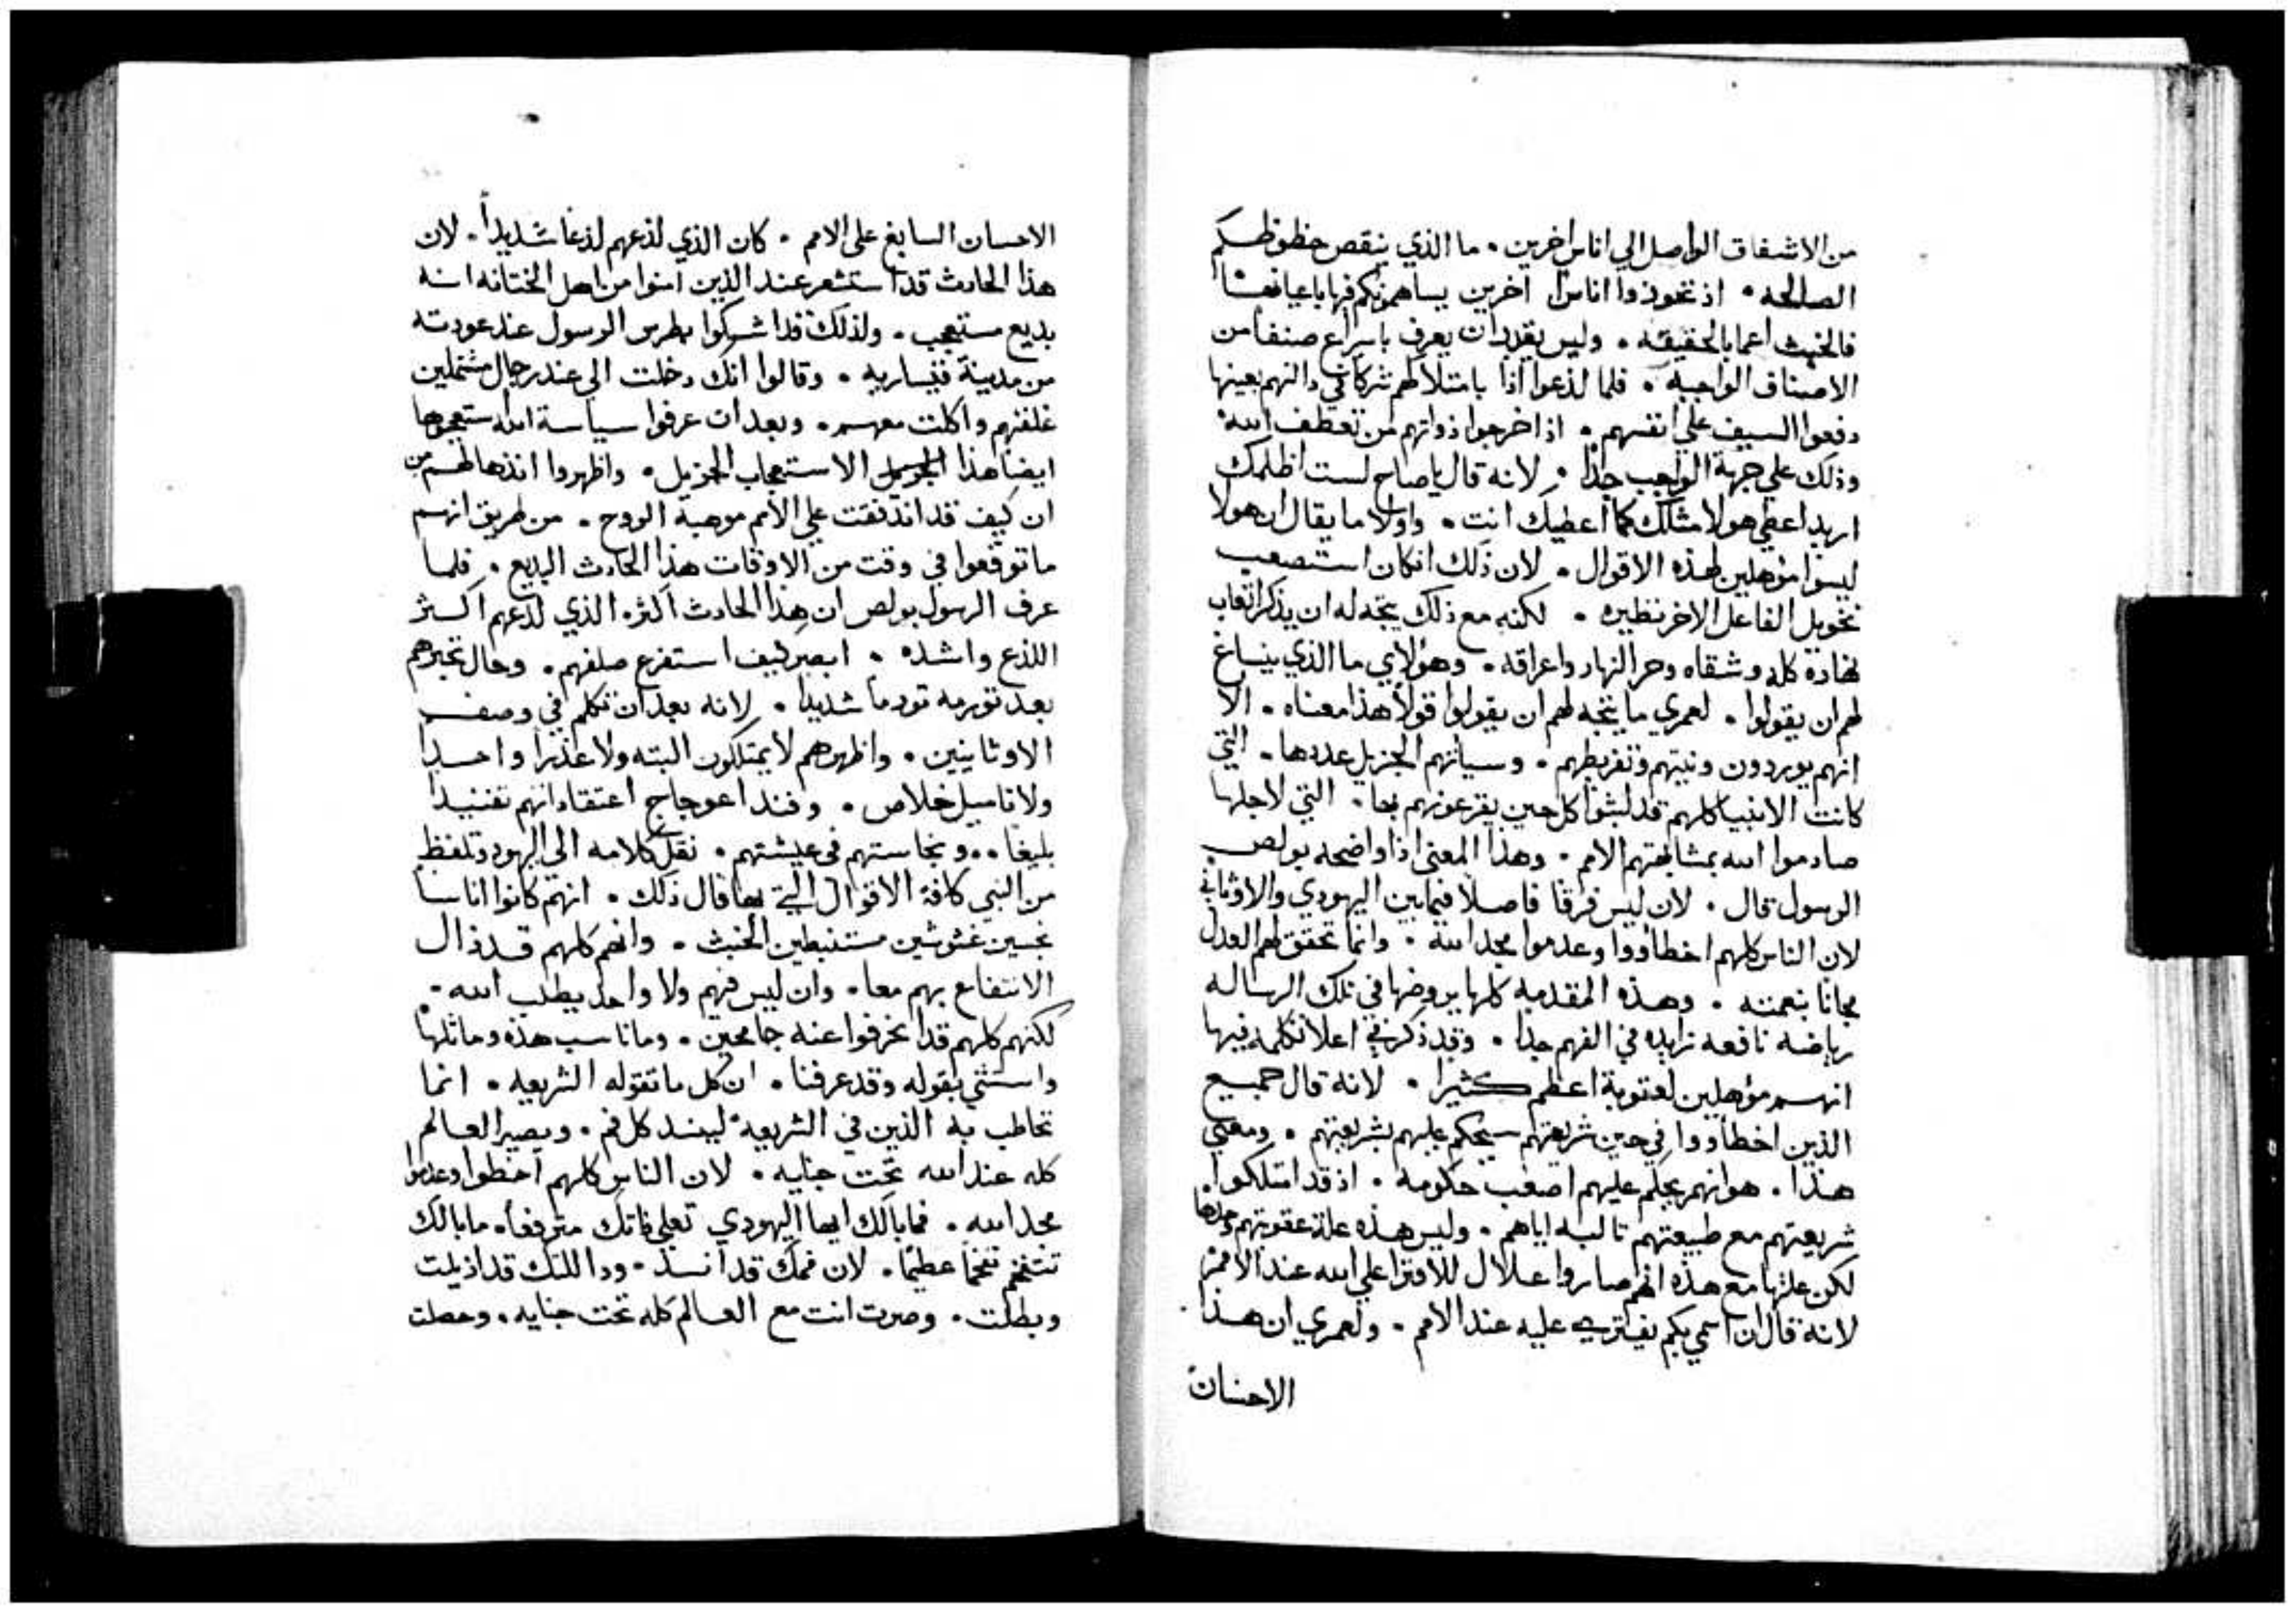 من الاشفاق الواصل الي اناس اخرين . ما الذي ينقص حظوظكم
الصالحه . اذ تحوذوا اناسا اخرين يساهمونكم فيها باعيانها
فالخبث اعما بالحقيقه . وليس يقدر ان يعرف باسراع صنفا من
الاصناف الواجبه . فلما لذعوا اذا بامتلاكهم شركا في دالتهم بعينها
دفعوا السيف علي انفسهم . اذ اخرجوا ذواتهم من تعطف الله
وذلك علي جهة الواجب جدا . لانه قال يا صاح لست اظلمك
اريد اعطي هولا مثلك كما اعطيك انت . واولا ما يقال ان هولا
ليسوا موهلين لهذه الاقوال . لان ذلك انكان استصعب
تخويل الفاعل الاخر نظيره . لكنه مع ذلك يتجه له ان يذكر اتعاب
نهاره كله وشقاه وحر النهار واعراقه . وهولاي ما الذي ينساغ
لهم ان يقولوا . لعمري ما يتجه لهم ان يقولوا قولا هذا معناه . الا
انهم يوردون ونيتهم وتفريطهم . وسياتهم الجزيل عددها . التي
كانت الانبيا كلهم قد لبثوا كل حين يقرعونهم بها . التي لاجلها
صادموا الله بمشابهتهم الامم . وهذا المعني اذا واضحه بولص
الرسول قال . لان ليس فرقا فاصلا فيمابين اليهودي والاوثاني
لان الناس كلهم اخطاووا وعدموا مجد الله . وانما تحقق لهم العدل
مجانا بنعمته . وهذه المقدمه كلها يروضها في تلك الرساله
رياضه نافعه زايده في الفهم جدا . وقد ذكر في اعلا تكلمه فيها
انهم موهلين لعقوبة اعظم كثيرا . لانه قال جميع
الذين اخطاووا في حين شريعتهم سيحكم عليهم بشريعتهم . ومعني
هذا . هو انهم يحكم عليهم اصعب حكومه . اذ قد امتلكوا
شريعتهم مع طبيعتهم ثالبه اياهم . وليس هذه علة عقوبتهم وحدها
لكن علتها مع هذه انهم صاروا عللا للافترا علي الله عند الامم
لانه قال ان اسمي بكم يفتري عليه عند الامم . ولعمري ان هذا
الاحسان
الاحسان السابغ علي الامم . كان الذي لذعهم لذعا شديدا . لان
هذا الحادث قد استشعر عند الذين امنوا من اهل الختانه انه
بديع مستعجب . ولذلك قد اشركوا بطرس الرسول عند عودته
من مدينة قيساريه . وقالوا انك دخلت الي عند رجال مشتملين
غلفتهم واكلت معهم . وبعد ان عرفوا سياسة الله استعجبوها
ايضا هذا الاستعجاب الجزيل . واظهروا انذهالهم من
ان كيف قد اندفقت علي الامم موهبة الروح . من طريق انهم
ما توقعوا في وقت من الاوقات هذا الحادث البديع . فلما
عرف الرسول بولص ان هذا الحادث اكثره الذي لذعهم اكثر
اللذع واشده . ابصر كيف استفرغ صلفهم . وحال تجبرهم
بعد تورمه تورما شديدا . لانه بعد ان تكلم في وصف
الاوثانيين . واظهرهم لا يمتلكون البته ولا عذرا واحدا
ولا تاميل خلاص . وفند اعوجاج اعتقاداتهم تفنيدا
بليغا . . ونجاستهم في عيشتهم . نقل كلامه الي اليهود وتلفظ
من النبي كافة الاقوال التي بها قال ذلك . انهم كانوا اناسا
نجسين غشوشين مستنبطين الخبث . وانهم كلهم قد زال
الانتفاع بهم معا . وان ليس فيهم ولا واحد يطلب الله .
لكنهم كلهم قد انحرفوا عنه جامحين . وما ناسب هذه وماثلها
واستثني بقوله وقد عرفنا . ان كل ما تقوله الشريعه . انما
تخاطب به الذين في الشريعه ليسد كل فم . ويصير العالم
كله عند الله تحت جنايه . لان الناس كلهم اخطوا وعدموا
مجد الله . فما بالك ايها اليهودي تعلي ذاتك مترفعا . ما بالك
تتفخم تفخما عظيما . لان فمك قد انسد . ودالتك قد ازيلت
وبطلت . وصرت انت مع العالم كله تحت جنايه . وحصلت